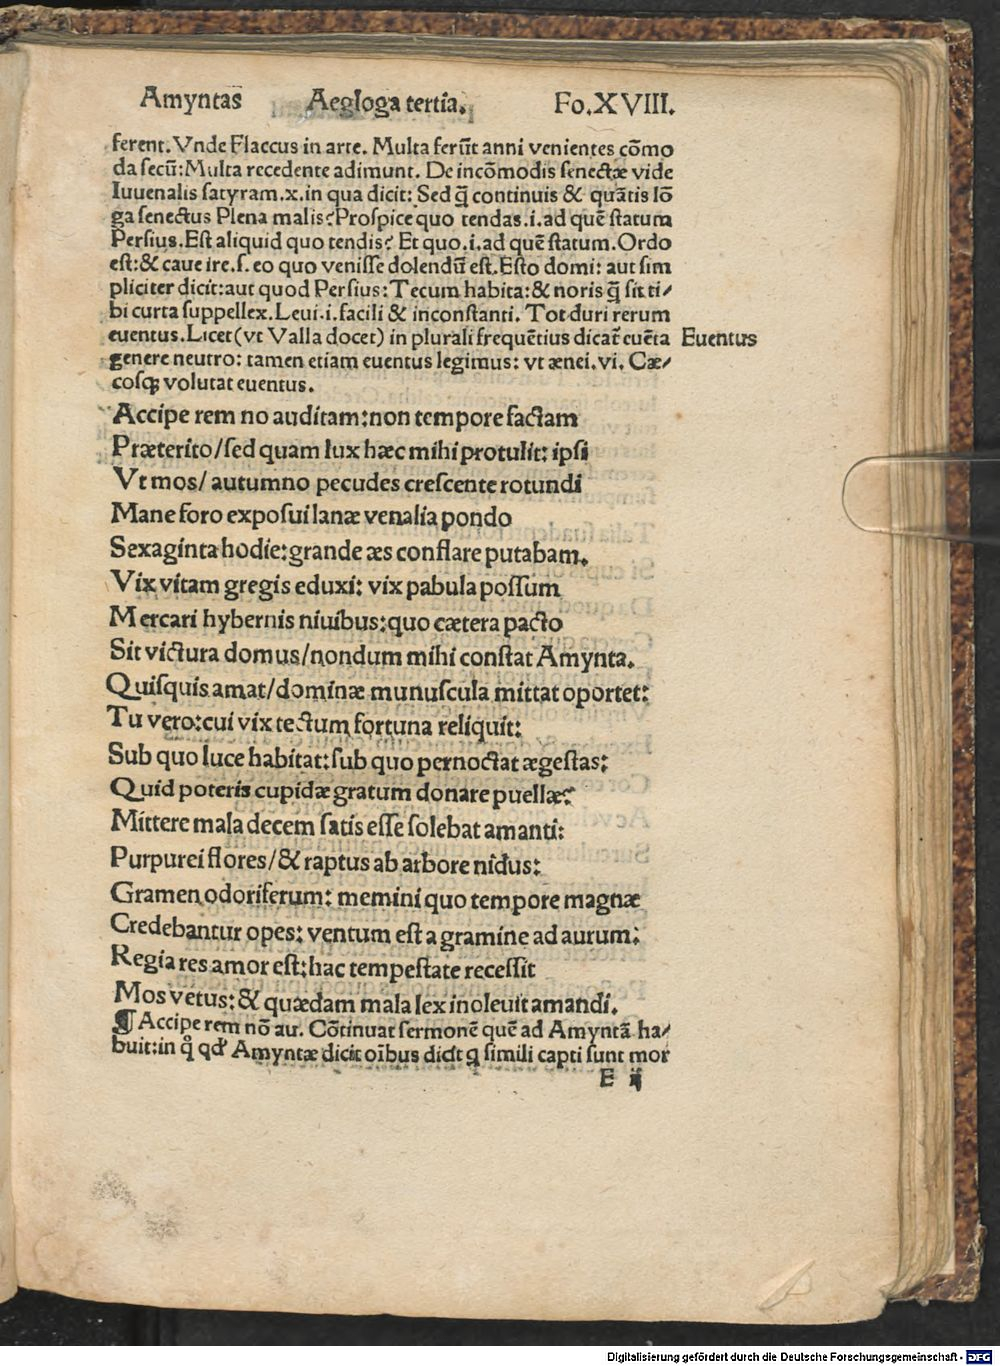 Amyntas Aegloga tertia. Fo.XVIII.
ferent. Vnde Flaccus in arte. Multa ferūt anni venientes cōmo
da secū:Multa recedente adimunt. De incōmodis senectæ vide
Iuuenalis satyram.x.in qua dicit: Sed q̄ continuis & quātis lō
ga senectus Plena malis?Prospice quo tendas.i.ad quē statum
Persius.Est aliquid quo tendis? Et quo.i.ad quē statum.Ordo
est:& caue ire.s.eo quo venisse dolendū est.Esto domi: aut sim
pliciter dicit:aut quod Persius:Tecum habita:& noris q̄ sit ti/
bi curta suppellex.Leui.i.facili & inconstanti. Tot duri rerum
euentus.Licet(vt Valla docet) in plurali frequētius dicat̄ euēta Euentus
genere neutro: tamen etiam euentus legimus: vt ænei.vi. Cæ/
cosq; volutat euentus.
Accipe rem no auditam:non tempore factam
Præterito/sed quam lux hæc mihi protulit: ipsi
Vt mos/ autumno pecudes crescente rotundi
Mane foro exposui lanæ venalia pondo
Sexaginta hodie:grande æs conflare putabam.
Vix vitam gregis eduxi: vix pabula possum
Mercari hybernis niuibus:quo cætera pacto
Sit victura domus/nondum mihi constat Amynta.
Quisquis amat/dominæ munuscula mittat oportet:
Tu vero:cui vix tectum fortuna reliquit:
Sub quo luce habitat:sub quo pernoctat ægestas:
Quid poteris cupidæ gratum donare puellæ?
Mittere mala decem satis esse solebat amanti:
Purpurei flores/& raptus ab arbore nidus:
Gramen odoriferum: memini quo tempore magnæ
Credebantur opes: ventum est a gramine ad aurum:
Regia res amor est:hac tempestate recessit
Mos vetus:& quædam mala lex inoleuit amandi.
¶ Accipe rem nō au. Cōtinuat sermonē quē ad Amyntā ha/
buit:in q̊ qd' Amyntæ dicit oībus dicit q simili capti sunt mor
E ij
Digitalisierung gefördert durch die Deutsche Forschungsgemeinschaft - DFG